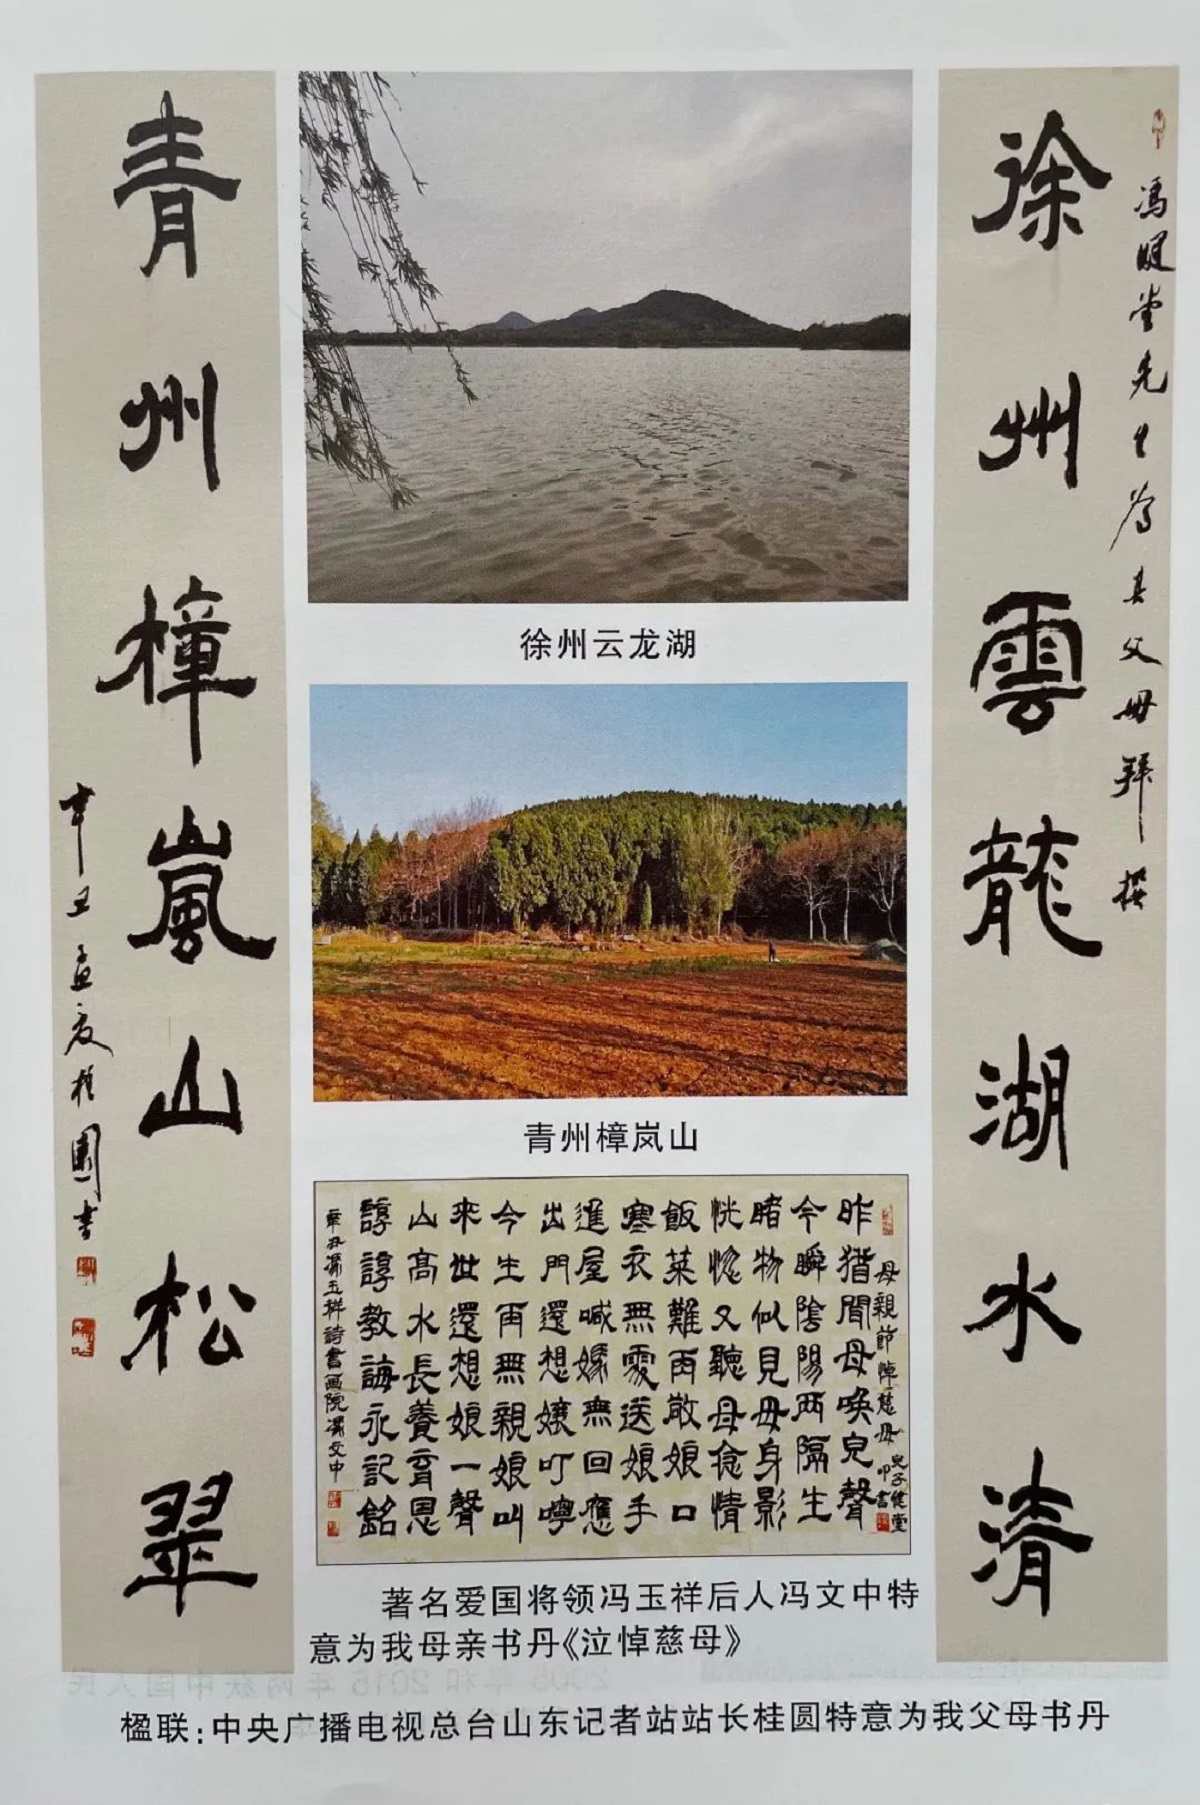 徐州雲龍湖水清
馮健堂先生為其父母拜撰
青州樟嵐山松翠
辛丑孟夏桂圓書
徐州云龙湖
青州樟岚山
母親節悼慈母
兒子健堂叩書
昨猶聞母喚兒聲
今瞬陰陽兩隔生
睹物似見母身影
恍惚又聽母念情
飯菜難再敬娘口
寒衣無處送娘手
進屋喊嬢無回應
出門還想嬢叮嚀
今生再無親娘叫
來世還想娘一聲
山高水長養育恩
諄諄教誨永記銘
辛丑馮玉祥詩書画院馮文中
著名爱国将领冯玉祥后人冯文中特
意为我母亲书丹《泣悼慈母》
楹联:中央广播电视总台山东记者站站长桂圆特意为我父母书丹